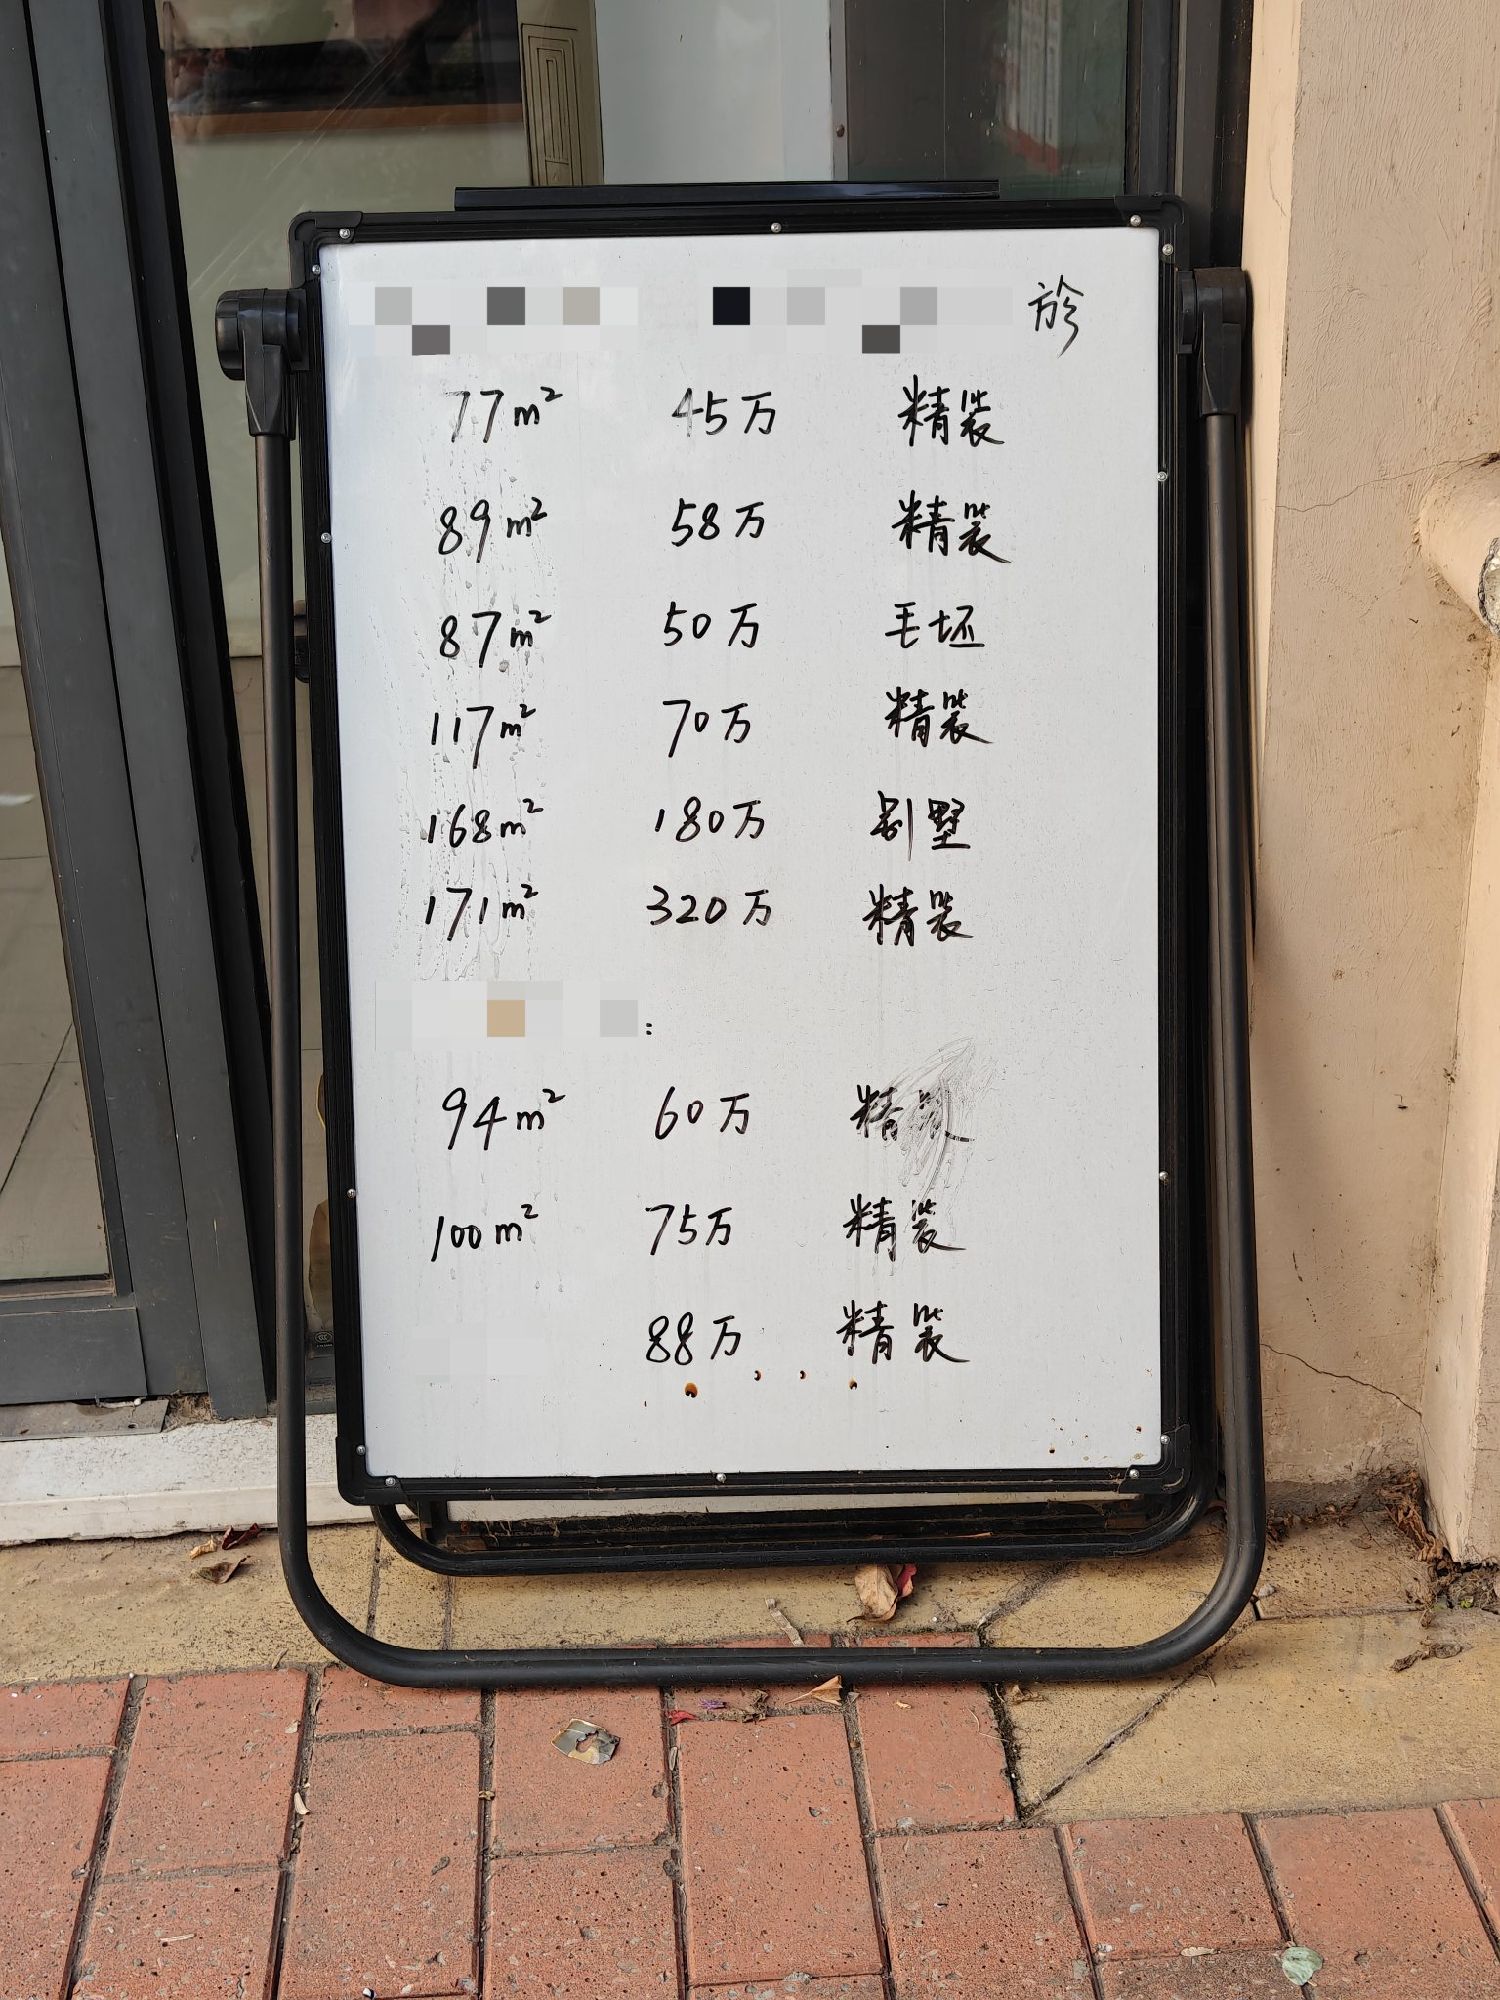 於
77m² 45万 精装
89m² 58万 精装
87m² 50万 毛坯
117m² 70万 精装
168m² 180万 别墅
171m² 320万 精装
:
94m² 60万 精装
100m² 75万 精装
88万 精装